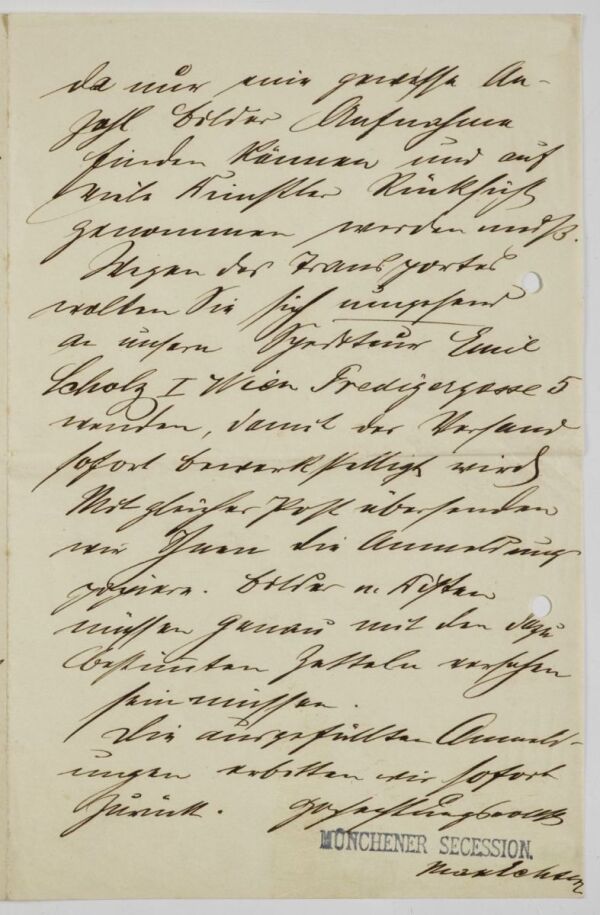 da nur eine gewisse An-
zahl Bilder Aufnahme
finden können und auf
viele Künstler Rücksicht
genommen werden muß.
Wegen des Transportes
wollen Sie sich umgehend
an unsern Spediteur Emil
Scholz I Wien Predigergasse 5
wenden, damit der Versand
sofort bewerkstelligt wird
Mit gleicher Post übersenden
wir Ihnen die Anmeldungs
papiere. Bilder u. Kisten
müssen genau mit den dazu
bestimmten Zetteln versehen
sein müssen.
Die ausgefüllten Anmeld-
ungen erbitten wir sofort
zurück. Hochachtungsvollst
MÜNCHENER SECESSION.